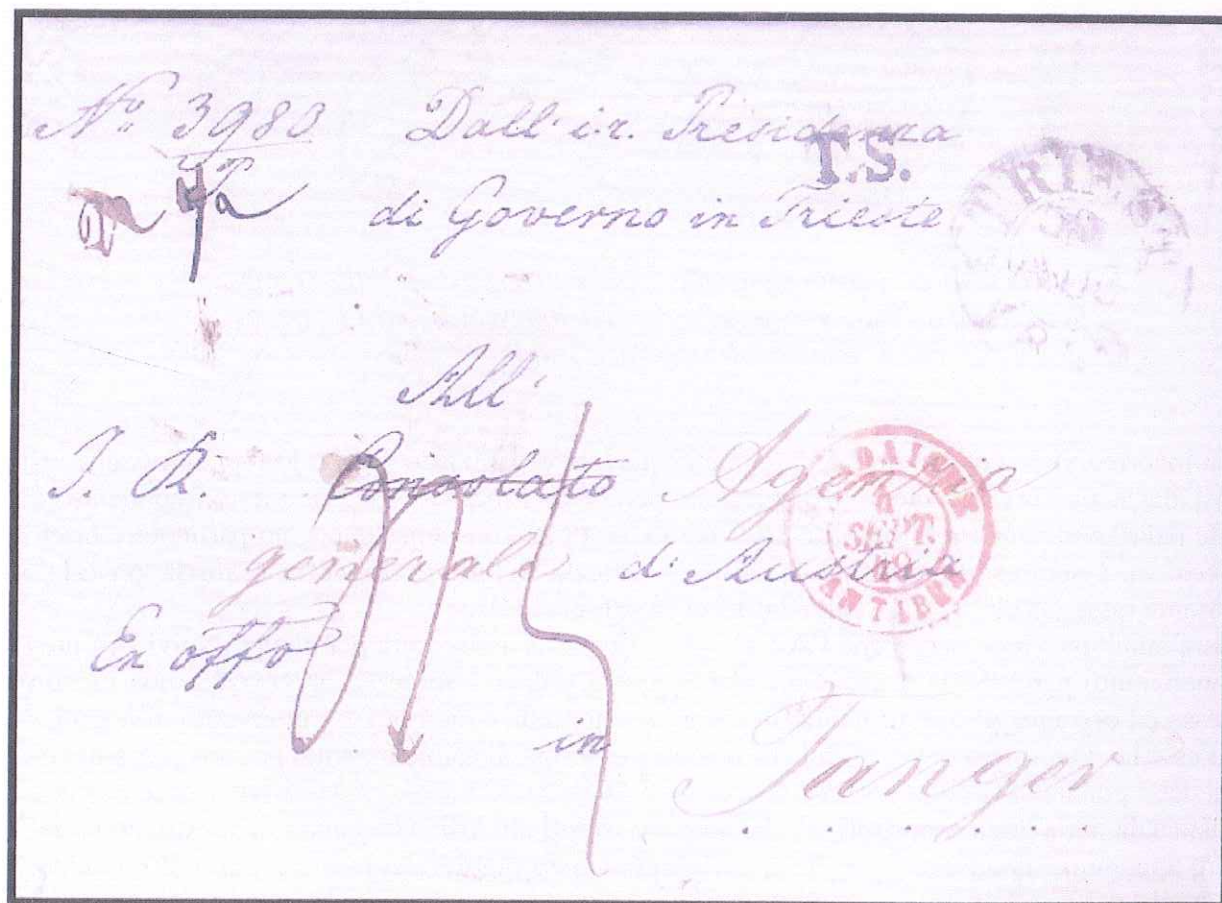 No 3980 Dall' i.r. Presidenza
T.S.
di Governo in Trieste
TRIEST
All'
I. R. Consolato Agenzia
generale d'Austria
SARDAIGNE
6
SEPT.
ANTIBES
Ex offo
in
Tanger